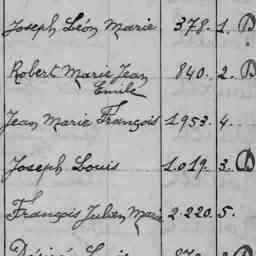 Joseph Léon Marie 378. 1. D
Robert Marie Jean 840. 2. D
Emile
Jean Marie François 1.953. 4.
Joseph Louis 1.019. 3. D
François Julien Marie 2.220. 5.
Désiré Louis